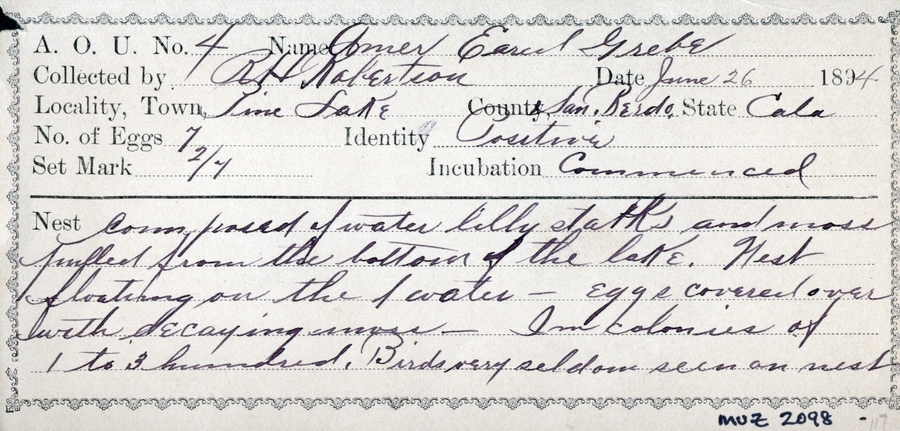 A. O. U. No. 4 Name Amer Eared Grebe
Collected by RH Robertson Date June 26 1894
Locality, Town, Pine Lake County, San. Berdo, State Cala
No. of Eggs 7 Identity Positive
Set Mark 2/7 Incubation Commenced
Nest composed of water lilly stalks and moss
pulled from the bottom of the lake. Nest
floating on the water — eggs covered over
with decaying moss — In colonies of
1 to 3 hundred. Birds very seldom seen on nest
MVZ 2098 -117